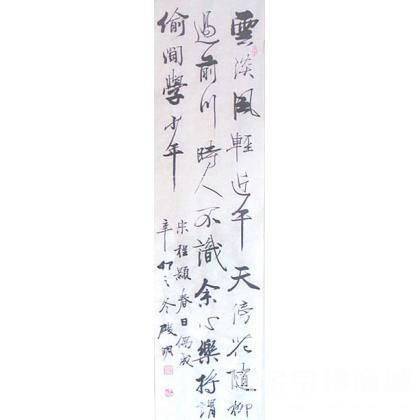 雲淡風輕近午天傍花隨柳
過前川時人不識余心樂將謂
偷閒學少年
宋程顥春日偶成
辛卯之冬